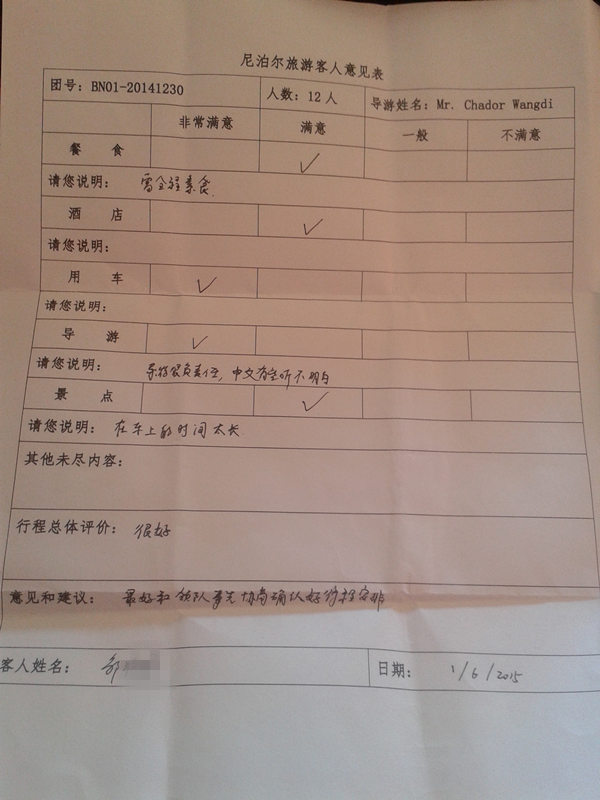 尼泊尔旅游客人意见表
团号：BN01-20141230 人数：12人 导游姓名：Mr. Chador Wangdi
非常满意 满意 一般 不满意
餐 食 ✓
请您说明： 需全程素食
酒 店 ✓
请您说明：
用 车 ✓
请您说明：
导 游 ✓
请您说明： 导游很负责任，中文有些听不明白
景 点 ✓
请您说明： 在车上的时间太长
其他未尽内容：
行程总体评价： 很好
意见和建议： 最好和领队事先协商确认好行程安排
客人姓名： 日期： 1/6/2015